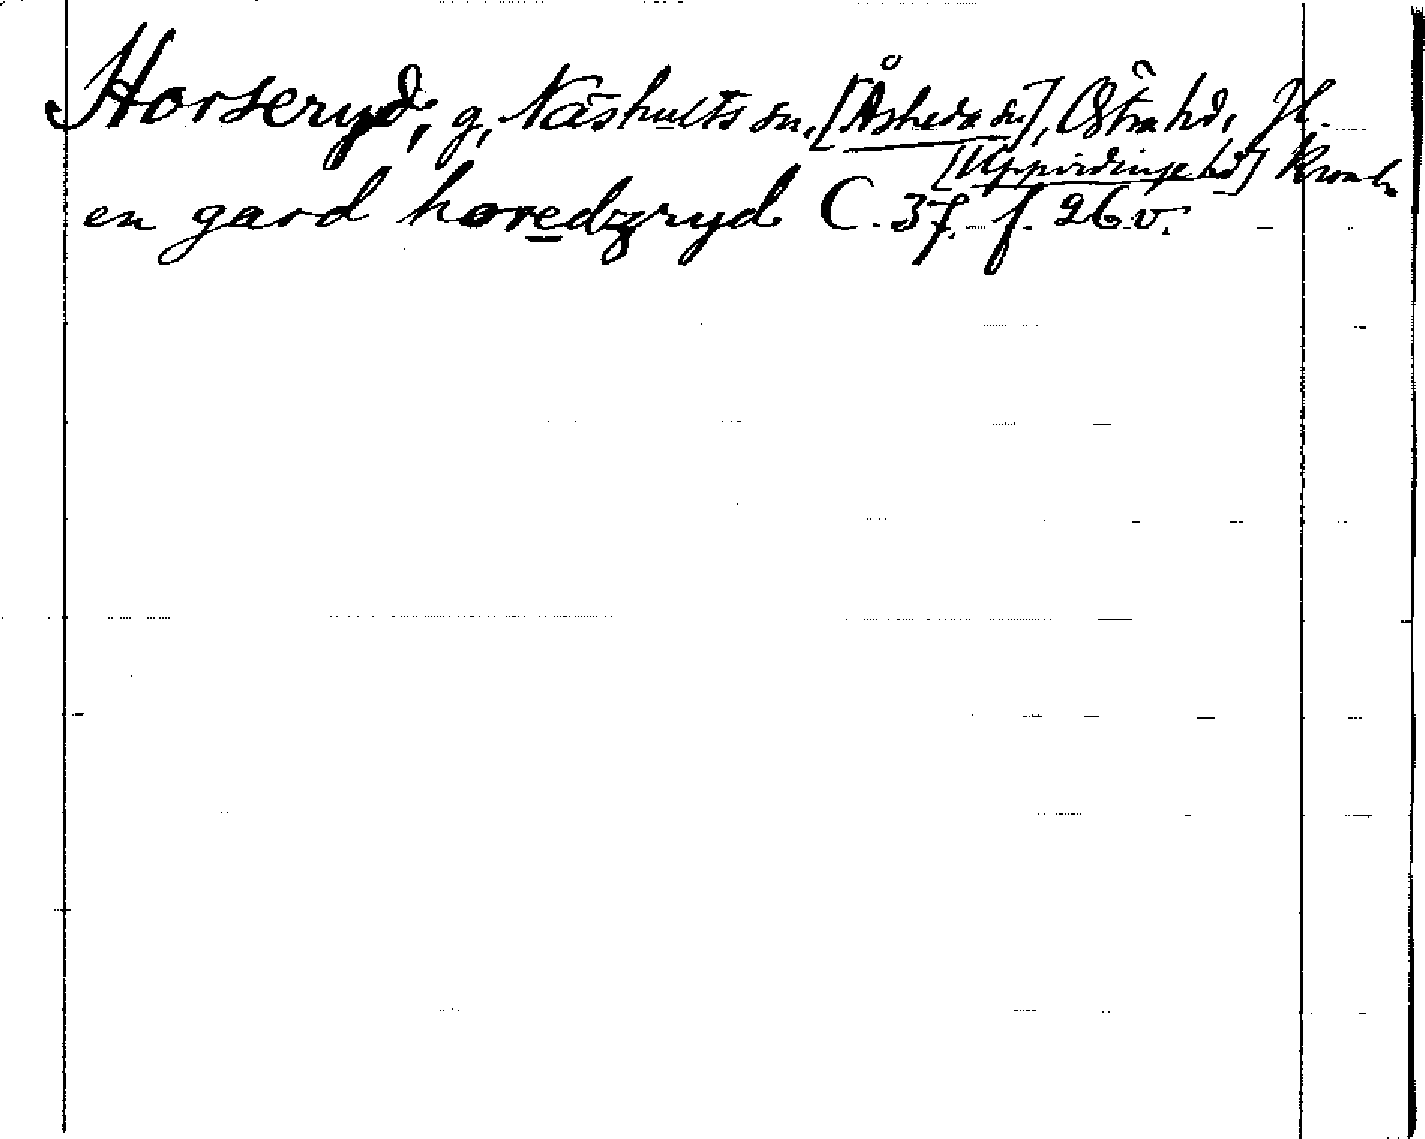 Horseryd, g, Näshults sn, [Åsheda sn], Östra hd, Jl.
[Uppvidinge hd] Kronobn
en gard horedzryd C. 37. f. 26 v.